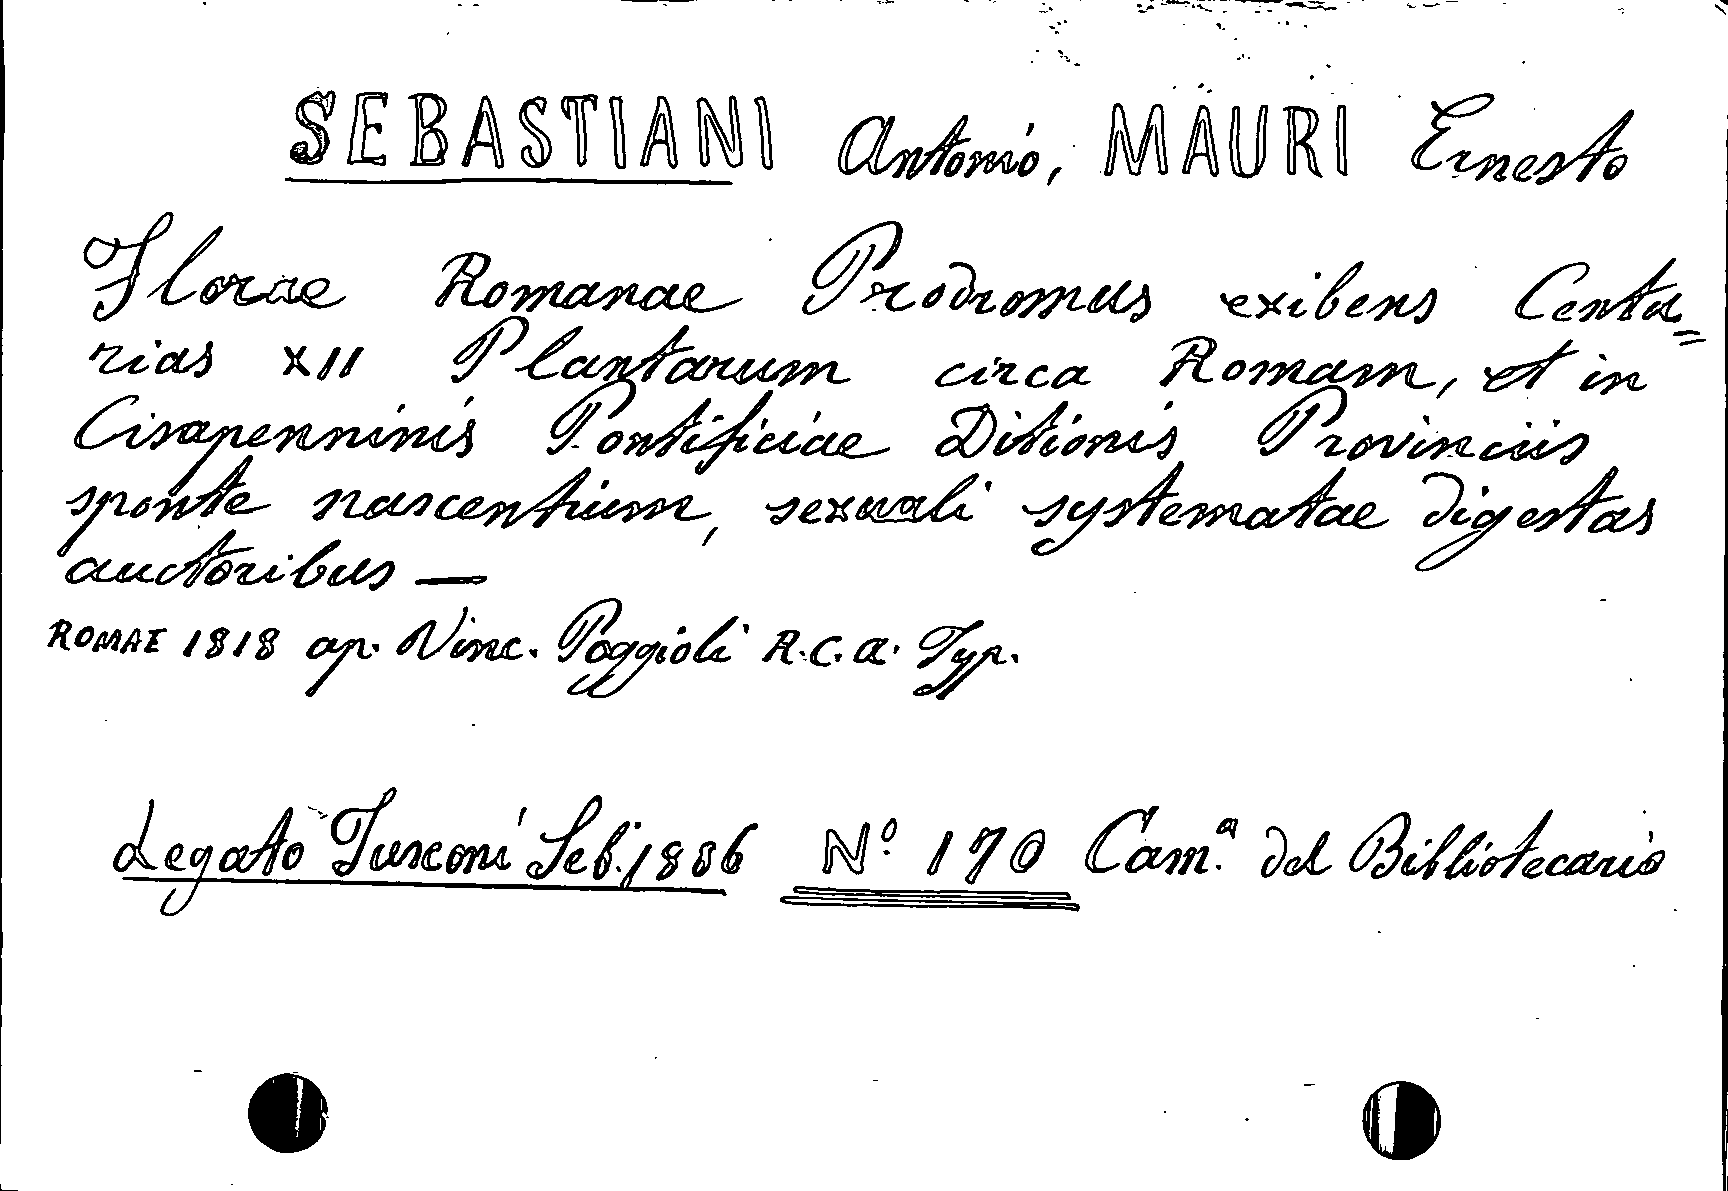 SEBASTIANI Antonio, MAURI Ernesto
Florae Romanae Prodromus exibens Centu=
rias XII Plantarum circa Romam, et in
Cisapenninis Pontificiae Ditionis Provinciis
sponte nascentium, sexuali systematae digestas
auctoribus —
ROMAE 1818 ap. Vinc. Poggioli R.C.A. Typ.
Legato Tusconi Seb. 1886 N.o 170 Cam.a del Bibliotecario